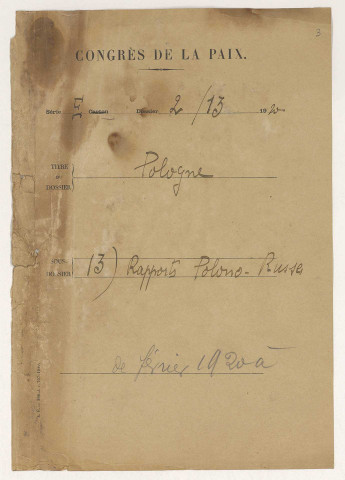 3
CONGRÈS DE LA PAIX.
Série Carton Dossier 2/13 1920
TITRE du DOSSIER Pologne
SOUS-DOSSIER 13) Rapports Polono-Russes
de février 1920 à